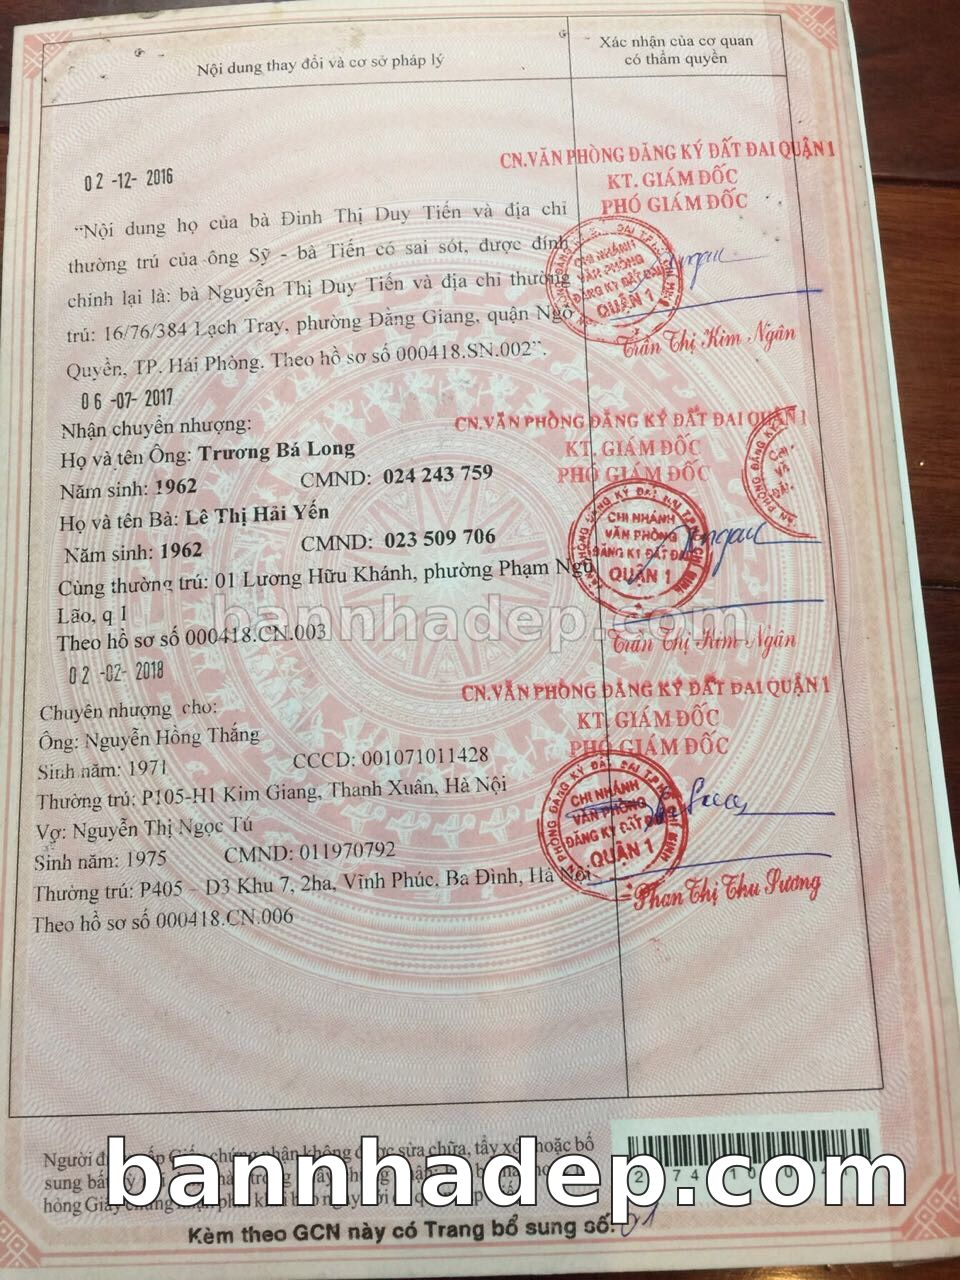 Nội dung thay đổi và cơ sở pháp lý
Xác nhận của cơ quan
có thẩm quyền
02 -12- 2016
"Nội dung họ của bà Đinh Thị Duy Tiến và địa chỉ
thường trú của ông Sỹ - bà Tiến có sai sót, được đính
chính lại là: bà Nguyễn Thị Duy Tiến và địa chỉ thường
trú: 16/76/384 Lạch Tray, phường Đằng Giang, quận Ngô
Quyền, TP. Hải Phòng. Theo hồ sơ số 000418.SN.002".
CN.VĂN PHÒNG ĐĂNG KÝ ĐẤT ĐAI QUẬN 1
KT. GIÁM ĐỐC
PHÓ GIÁM ĐỐC
CHI NHÁNH
VĂN PHÒNG
ĐĂNG KÝ ĐẤT ĐAI
QUẬN 1
Trần Thị Kim Ngân
06 -07- 2017
Nhận chuyển nhượng:
Họ và tên Ông: Trương Bá Long
Năm sinh: 1962 CMND: 024 243 759
Họ và tên Bà: Lê Thị Hải Yến
Năm sinh: 1962 CMND: 023 509 706
Cùng thường trú: 01 Lương Hữu Khánh, phường Phạm Ngũ
Lão, q 1
Theo hồ sơ số 000418.CN.003
CN.VĂN PHÒNG ĐĂNG KÝ ĐẤT ĐAI QUẬN 1
KT. GIÁM ĐỐC
PHÓ GIÁM ĐỐC
CHI NHÁNH
VĂN PHÒNG
ĐĂNG KÝ ĐẤT ĐAI
QUẬN 1
Trần Thị Kim Ngân
bannhadep.com
02 -02- 2018
Chuyển nhượng cho:
Ông: Nguyễn Hồng Thắng
Sinh năm: 1971 CCCD: 001071011428
Thường trú: P105-H1 Kim Giang, Thanh Xuân, Hà Nội
Vợ: Nguyễn Thị Ngọc Tú
Sinh năm: 1975 CMND: 011970792
Thường trú: P405 – D3 Khu 7, 2ha, Vĩnh Phúc, Ba Đình, Hà Nội
Theo hồ sơ số 000418.CN.006
CN.VĂN PHÒNG ĐĂNG KÝ ĐẤT ĐAI QUẬN 1
KT. GIÁM ĐỐC
PHÓ GIÁM ĐỐC
CHI NHÁNH
VĂN PHÒNG
ĐĂNG KÝ ĐẤT ĐAI
QUẬN 1
Phan Thị Thu Sương
Người chứng nhận không được sửa chữa, tẩy xóa hoặc bổ
sung
hỏng Giấy
bannhadep.com
Kèm theo GCN này có Trang bổ sung số: 01